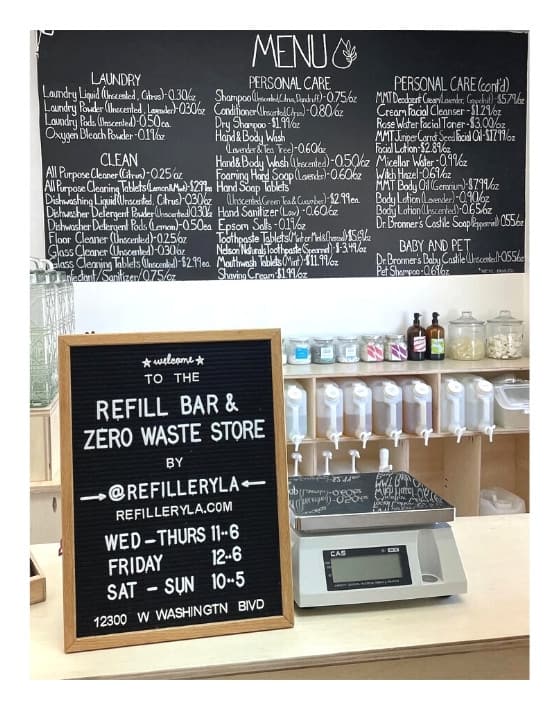 MENU
LAUNDRY
Laundry Liquid (Unscented, Citrus) - 0.30/oz
Laundry Powder (Unscented, Lavender) - 0.30/oz
Laundry Pods (Unscented) - 0.50 ea.
Oxygen Bleach Powder - 0.19/oz
CLEAN
All Purpose Cleaner (Citrus) - 0.25/oz
All Purpose Cleaning Tablets (Lemon & Mint) - $2.99 ea
Dishwashing Liquid (Unscented, Citrus) - 0.30/oz
Dishwasher Detergent Powder (Unscented) 0.30/oz
Dishwasher Detergent Pods (Lemon) - 0.50 ea
Floor Cleaner (Unscented) - 0.25/oz
Glass Cleaner (Unscented) - 0.30/oz
Glass Cleaning Tablets (Unscented) - $2.99 ea.
/Sanitizer - 0.75/oz
PERSONAL CARE
Shampoo (Unscented, Citrus, Dandruff) - 0.75/oz
Conditioner (Unscented, Citrus) - 0.80/oz
Dry Shampoo - $1.99/oz
Hand & Body Wash
(Lavender & Tea Tree) - 0.60/oz
Hand & Body Wash (Unscented) - 0.50/oz
Foaming Hand Soap (Lavender) - 0.60/oz
Hand Soap Tablets
(Unscented, Green Tea & Cucumber) - $2.99 ea.
Hand Sanitizer - 0.60/oz
Epsom Salts - 0.19/oz
Toothpaste Tablets
Nelson Naturals Toothpaste (Spearmint) - $3.49/oz
Mouthwash Tablets (Mint) - $11.99/oz
Shaving Cream - $1.99/oz
PERSONAL CARE (cont'd)
MMT Deodorant Cream (Lavender, Grapefruit) - $5.79/oz
Cream Facial Cleanser - $1.29/oz
Rose Water Facial Toner - $3.00/oz
MMT Juniper Carrot Seed Facial Oil - $17.99/oz
Facial Lotion - $2.89/oz
Micellar Water - 0.99/oz
Witch Hazel - 0.69/oz
MMT Body Oil (Geranium) - $7.99/oz
Body Lotion (Lavender) - 0.90/oz
Body Lotion (Unscented) - 0.65/oz
Dr. Bronner's Castile Soap (Peppermint) 0.55/oz
BABY AND PET
Dr. Bronner's Baby Castile (Unscented) - 0.55/oz
Pet Shampoo - 0.69/oz
welcome
TO THE
REFILL BAR &
ZERO WASTE STORE
BY
@REFILLERYLA
REFILLERYLA.COM
WED - THURS 11--6
FRIDAY 12--6
SAT - SUN 10--5
12300 W WASHINGTN BLVD
CAS